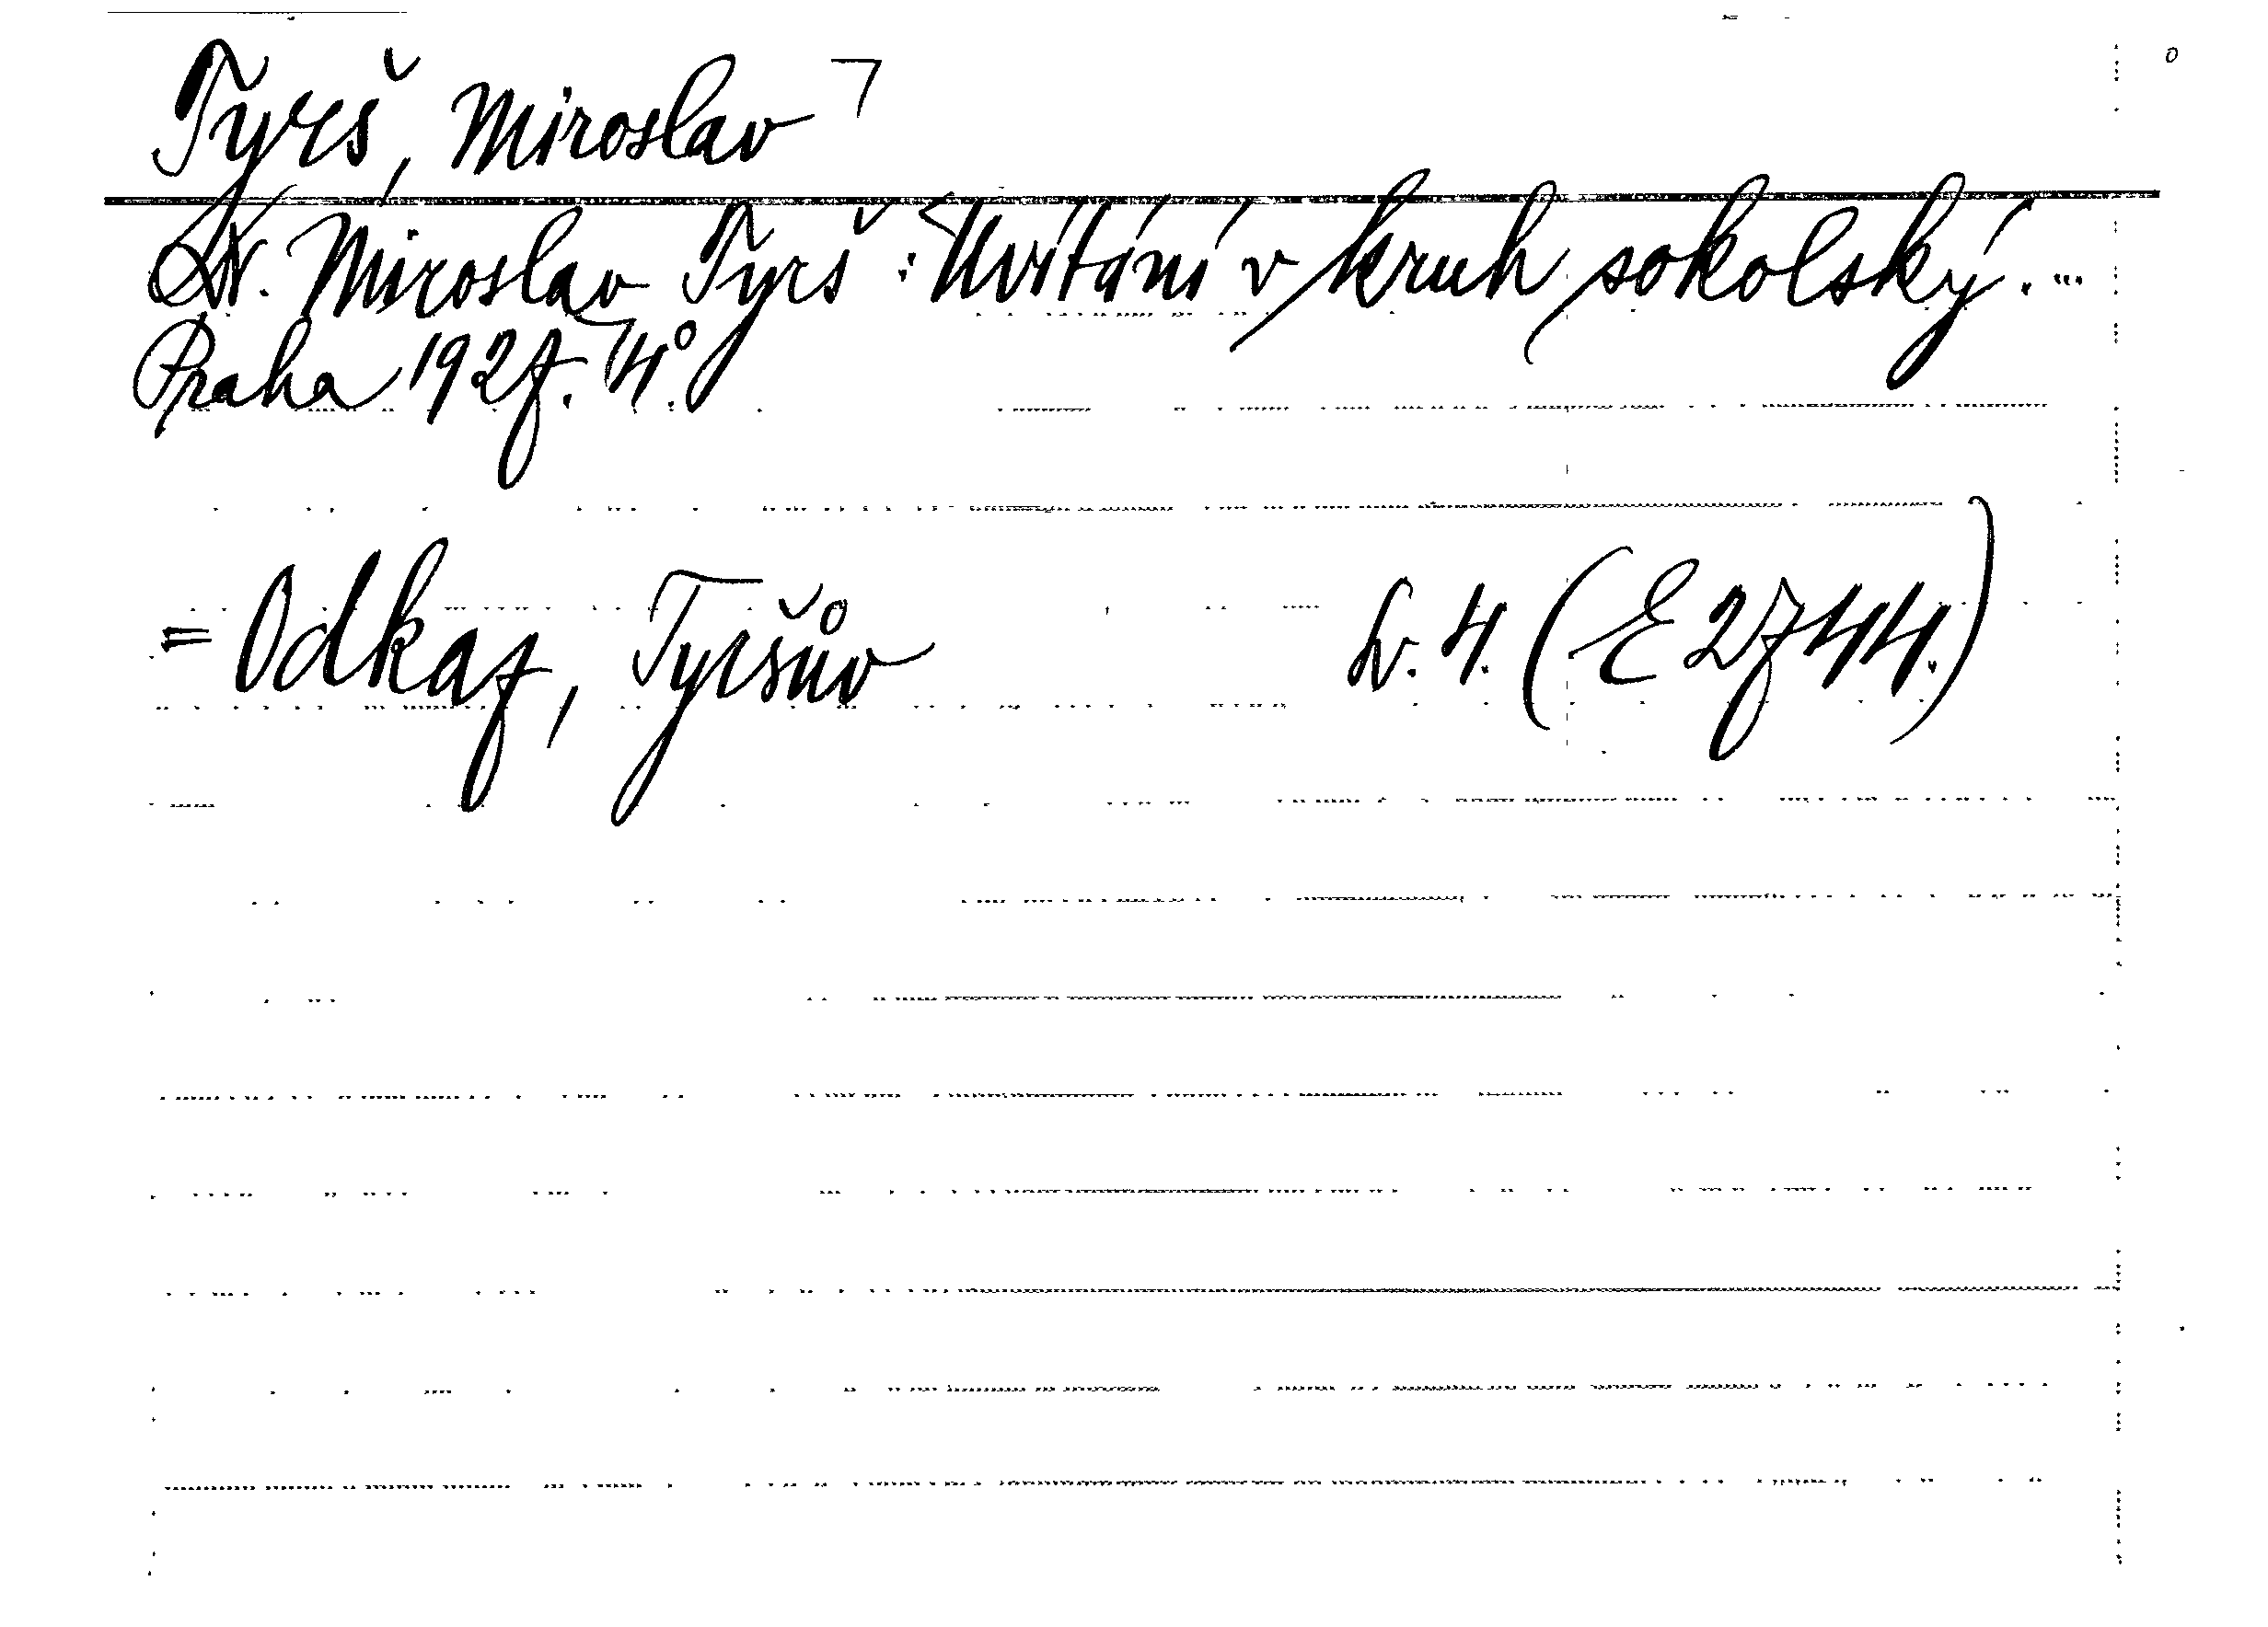 Tyrš, Miroslav
Dr. Miroslav Tyrš: Uvítání v kruh sokolský. ...
Praha 1927. 4°.
= Odkaz, Tyršův sv. 4. (E 2744.)